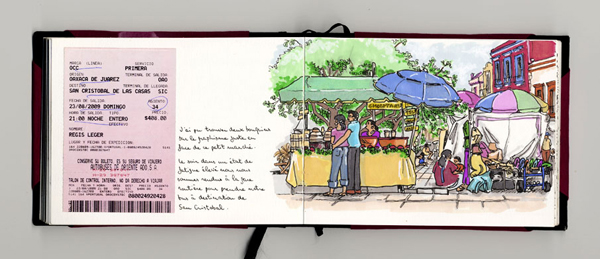 MARCA (LINEA) SERVICIO
OCC PRIMERA
ORIGEN TERMINAL DE SALIDA
OAXACA DE JUAREZ OAO
DESTINO TERMINAL DE LLEGADA
SAN CRISTOBAL DE LAS CASAS SIC
FECHA DE SALIDA ASIENTO
23/08/2009 DOMINGO 34
HORA DE SALIDA TIPO PRECIO
21:00 NOCHE ENTERO $408.00
NOMBRE
REGIS LEGER
LUGAR Y FECHA DE EXPEDICION
CONSERVE SU BOLETO, ES SU SEGURO DE VIAJERO
AUTOBUSES DE ORIENTE ADO S A
TALON DE CONTROL INTERNO. NO DA DERECHO A VIAJAR
080024920428
J'ai pu trouver deux bouquins
sur le graphisme juste en
face de ce petit marché.
Le soir dans un état de
fatigue élevé nous nous
sommes rendus à la gare
routière pour prendre notre
bus à destination de
San Cristobal.